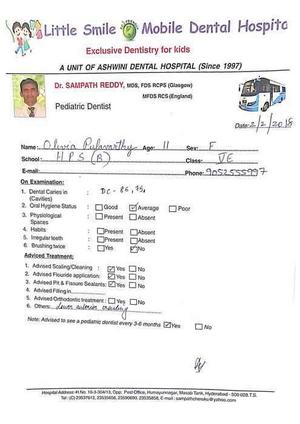 Little Smile Mobile Dental Hospita
Exclusive Dentistry for kids
A UNIT OF ASHWINI DENTAL HOSPITAL (Since 1997)
Dr. SAMPATH REDDY, MDS, FDS RCPS (Glasgow)
MFDS RCS (England)
Pediatric Dentist
Date: 2/2/2018
Name: Olivia Pulavarthy Age: 11 Sex: F
School: HPS (B) Class: VE
E-mail: Phone: 9052555997
On Examination:
1. Dental Caries in (Cavities) : DC - 85, 75
2. Oral Hygiene Status : Good Average Poor
3. Physiological Spaces : Present Absent
4. Habits : Present Absent
5. Irregular teeth : Present Absent
6. Brushing twice : Yes No
Adviced Treatment:
1. Advised Scaling/Cleaning : Yes No
2. Advised Flouride application: Yes No
3. Advised Pit & Fissure Sealants: Yes No
4. Advised Filling in
5. Advised Orthodontic treatment : Yes No
6. Others: lower anterior crowding
Note: Advised to see a pediatric dentist every 3-6 months Yes No
Hospital Address: Opp. Post Office, Humayunnagar, Masab Tank, Hyderabad - 500 028.T.S.
Tel: (C) 23537612, 23535458, 23590690, 23535858, E-mail : sampathchenuku@yahoo.com